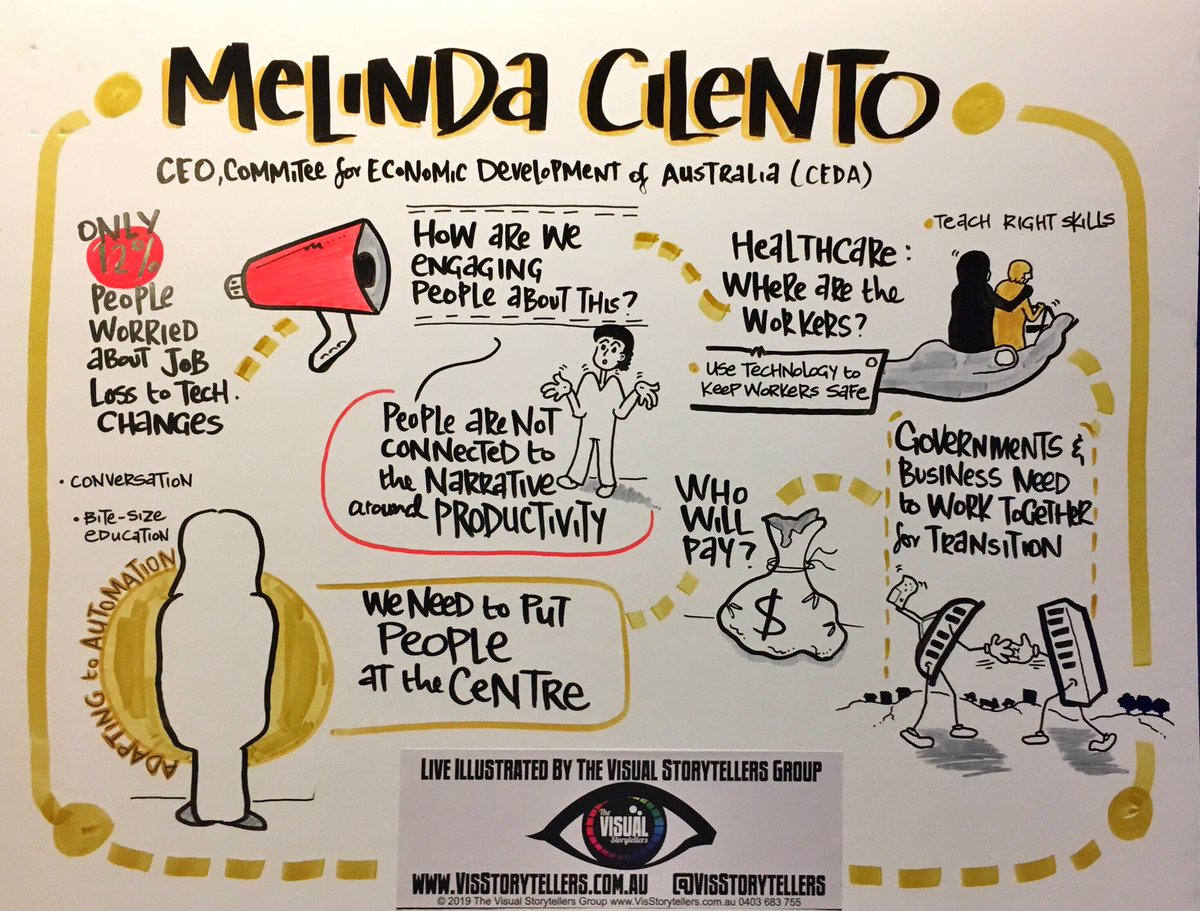 MELINDA CILENTO
CEO, COMMITEE for ECONOMIC DEVELOPMENT of AUSTRALIA (CEDA)
ONLY
12%
PEOPLE
WORRIED
about JOB
LOSS to TECH.
CHANGES
HOW are WE
ENGAGING
PEOPLE aBOUT THIS?
PEOPLE are NOT
CONNECTED to
the NARRATIVE
around PRODUCTIVITY
HEALTHCARE:
WHERE are the
WORKERS?
• TEACH RIGHT SKILLS
• USE TECHNOLOGY to
KEEP WORKERS SAFE
GOVERNMENTS &
BUSINESS NEED
to WORK TOGETHER
for TRANSITION
WHO
WILL
PAY?
$
• CONVERSATION
• BITE-SIZE
EDUCATION
ADAPTING to AUTOMATION
WE NEED to PUT
PEOPLE
AT the CENTRE
LIVE ILLUSTRATED BY THE VISUAL STORYTELLERS GROUP
The
VISUAL
Storytellers
WWW.VISSTORYTELLERS.COM.AU @VISSTORYTELLERS
© 2019 The Visual Storytellers Group www.VisStorytellers.com.au 0403 683 755